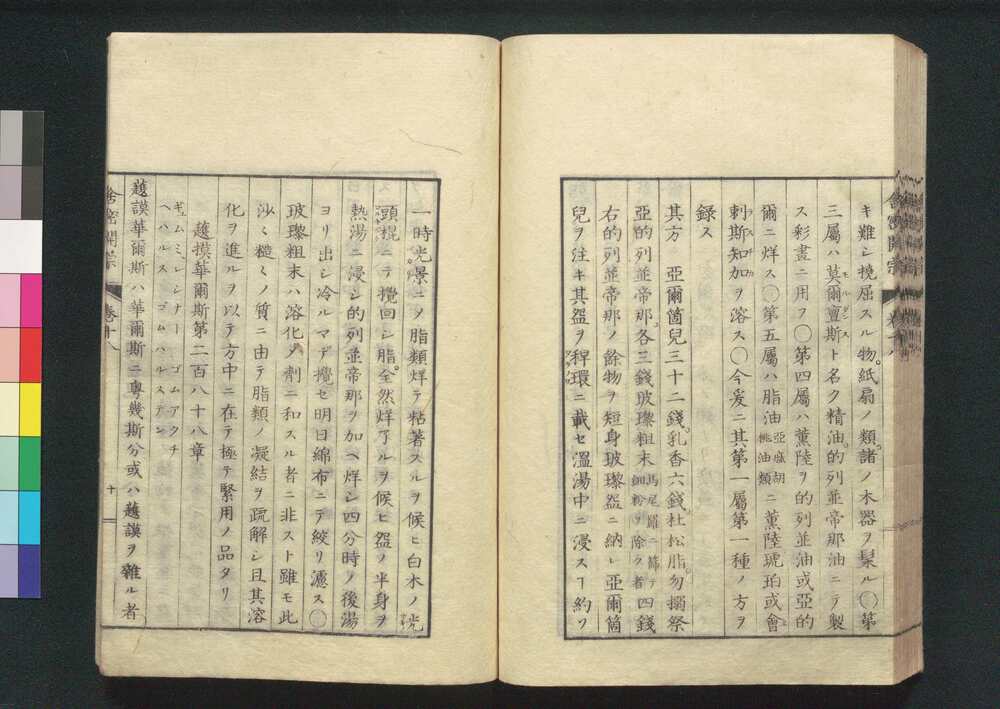 キ難シ撓屈スル物。紙扇ノ類。諸ノ木器ヲ髹ル〇第
三屬ハ莫爾亶斯ト名ク精油。的列並帝那油ニテ製
モルダンス
ス彩畫ニ用フ〇第四屬ハ薫陸ヲ的列並油或亞的
爾ニ烊ス〇第五屬ハ脂油亞麻胡桃油類ニ薫陸琥珀或會
刺斯知加ヲ溶ス〇今爰ニ其第一屬第一種ノ方ヲ
録ス
其方 亞爾箇兒三十二錢。乳香六錢。杜松脂。勿搦祭
亞的列並帝那。各三錢玻瓈粗末馬尾羅ニ篩テ細粉ヲ除ク者四錢
右的列並帝那ノ餘物ヲ短身玻瓈盌ニ納レ亞爾箇
兒ヲ注キ其盌ヲ稗環ニ載セ溫湯中ニ浸スヿ約ソ
一時光景ニ〆脂類烊テ粘著スルヲ候ヒ白木ノ禿
頭棍ニテ攪回シ脂。全然烊了ルヲ候ヒ盌ノ半身ヲ
熱湯ニ浸シ的列並帝那ヲ加ヘ烊シ四分時ノ後湯
ヨリ出シ冷ルマデ攪セ明日綿布ニテ絞リ濾ス〇
玻瓈粗末ハ溶化〆劑ニ和スル者ニ非スト雖モ此
沙々糙々ノ質ニ由テ脂類ノ凝結ヲ疏解シ且其溶
化ヲ進ルヲ以テ方中ニ在テ極テ緊用ノ品タリ
護摸華爾斯第二百八十八章
ギュムミ、レシナー ゴムアクチ
ヘハルス ゴムハルスデン
護謨華爾斯ハ華爾斯ニ越幾斯分或ハ護謨ヲ雜ル者
舎密開宗
卷十八
十